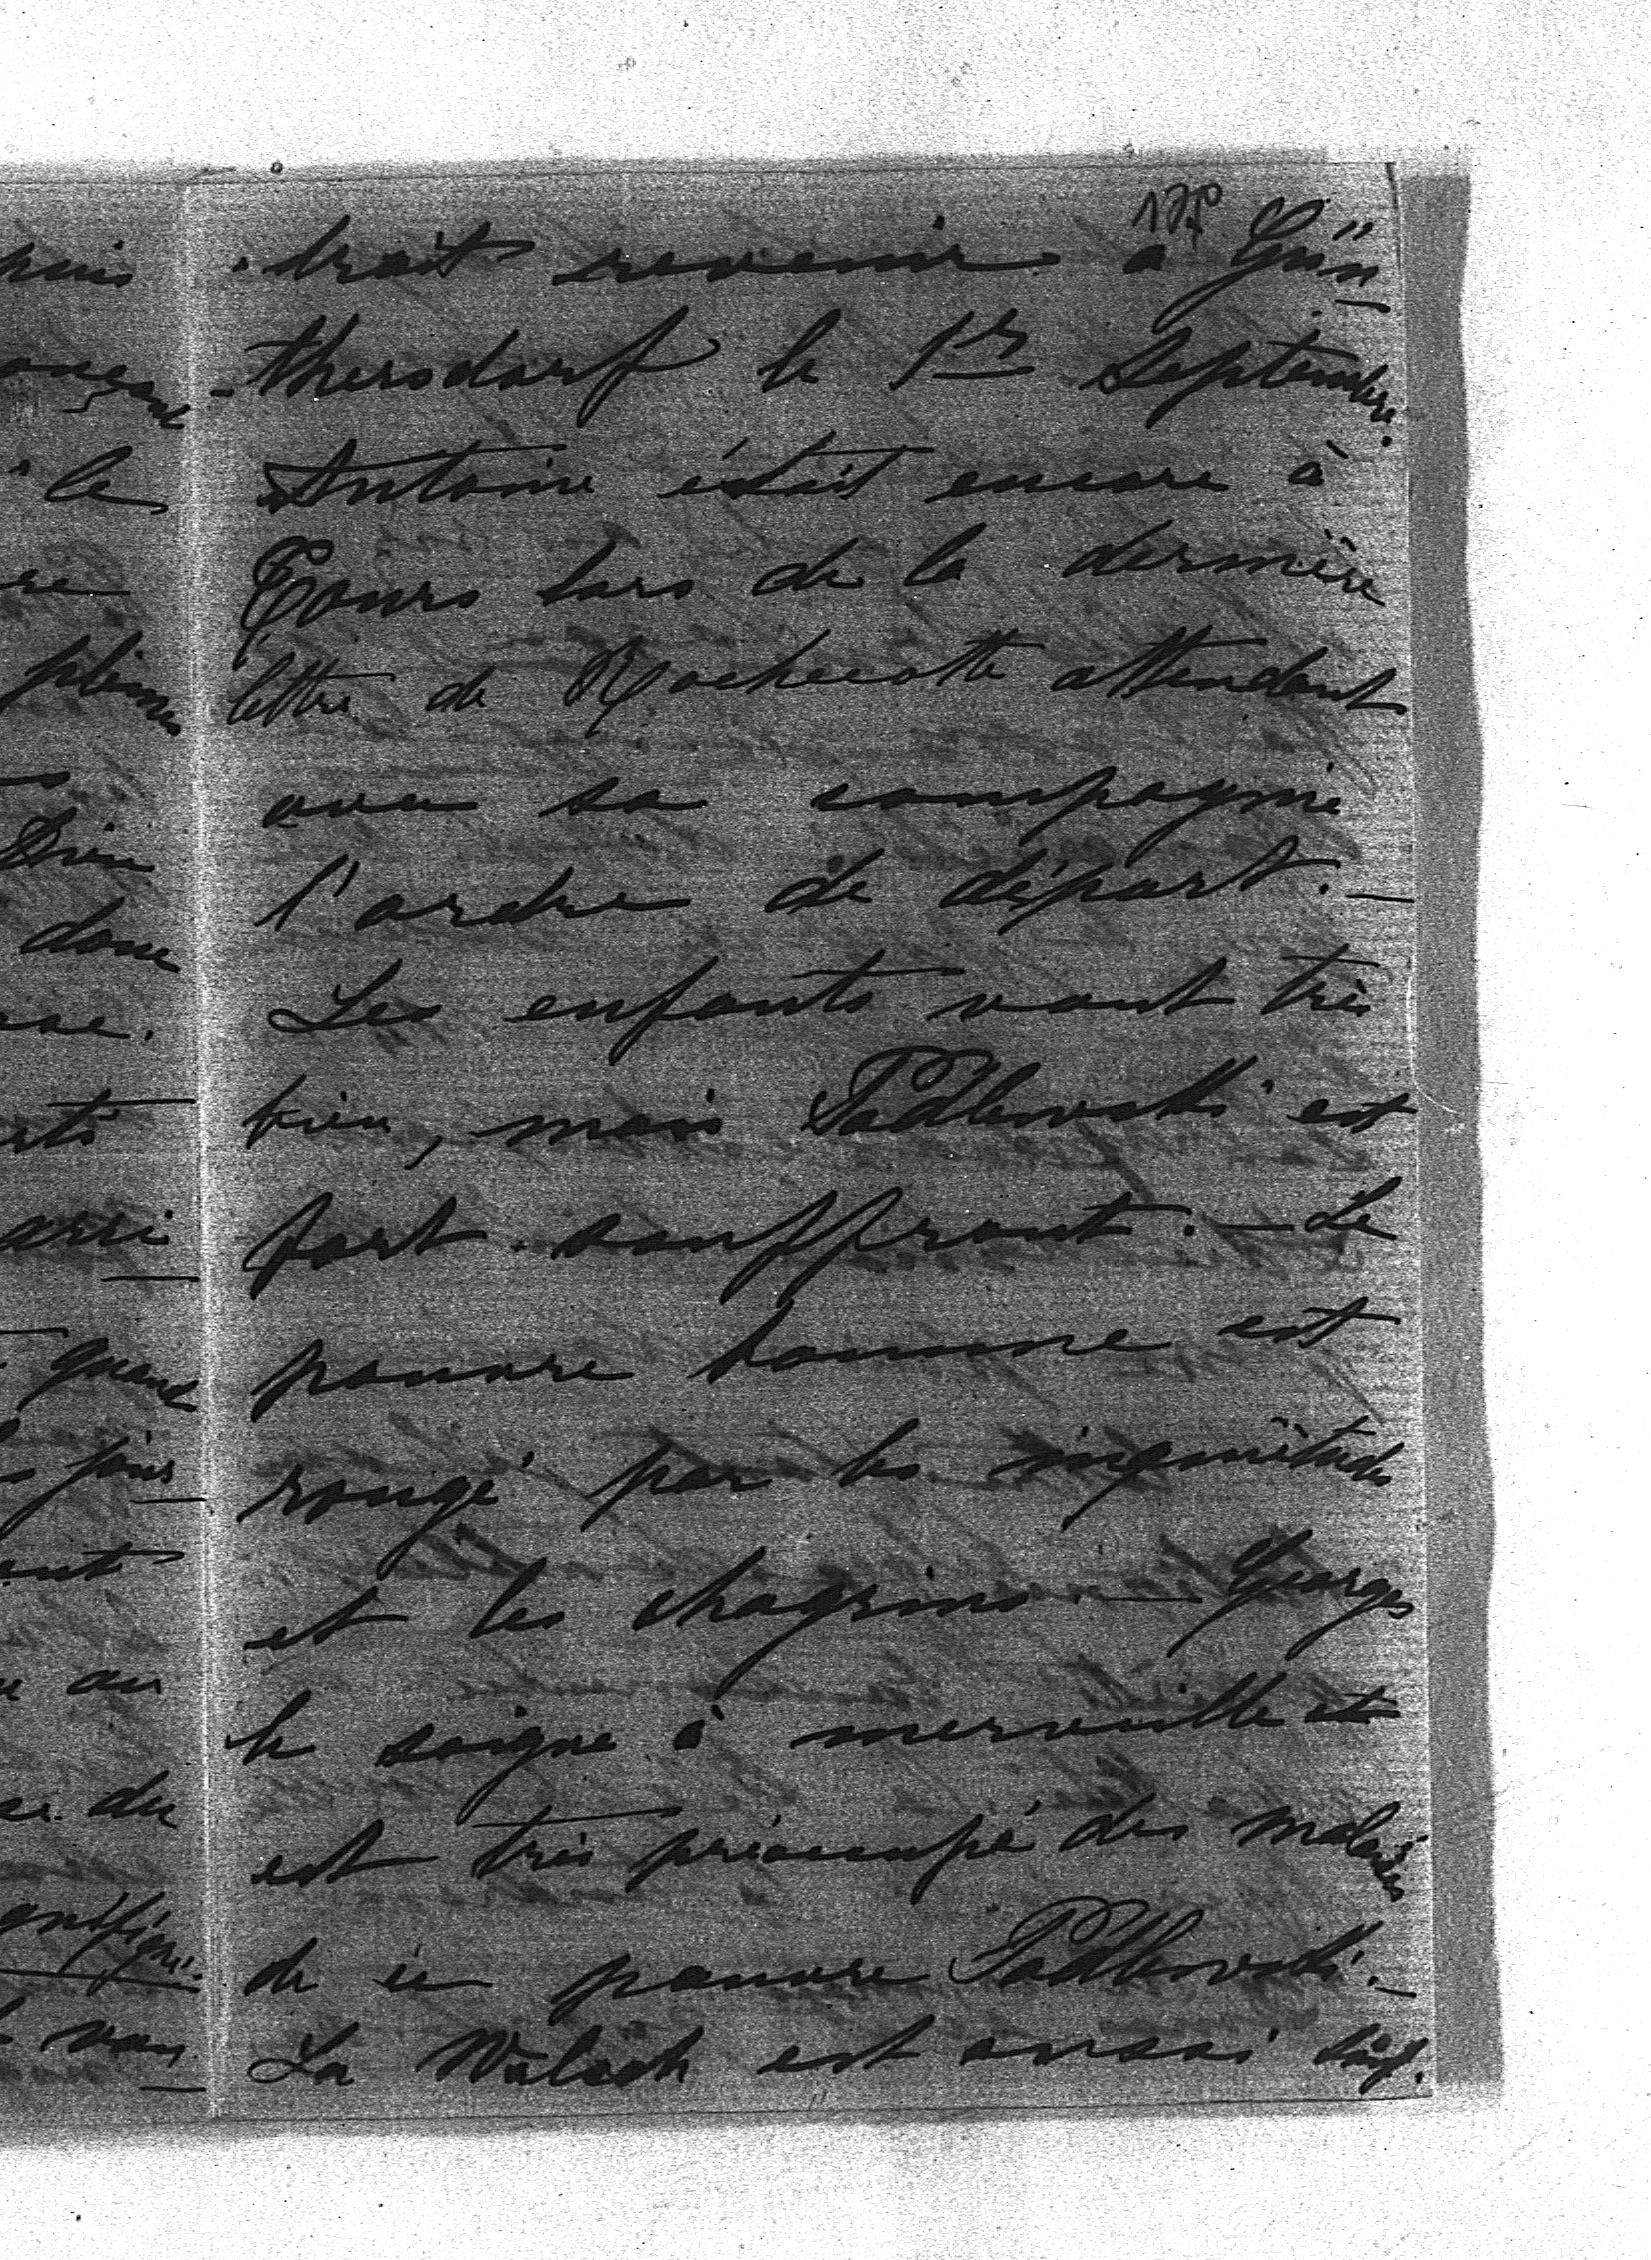 178
-trait revenir à Gün-
-thersdorf le 1er Septembre.
Antoine était encore à
Tours lors de la dernière
lettre de Rochecotte attendant
avec sa compagnie
l'ordre de départ. —
Les enfants vont très
bien, mais Podbowski est
fort souffrant. — Le
pauvre homme est
rongé par les inquiétudes
et les chagrins. — Georges
le soigne à merveille et
est très préoccupé des malaises
de ce pauvre Podbowski. —
La Walsch est aussi
puis
à la
donc
arri-
quand
jour-
au
du